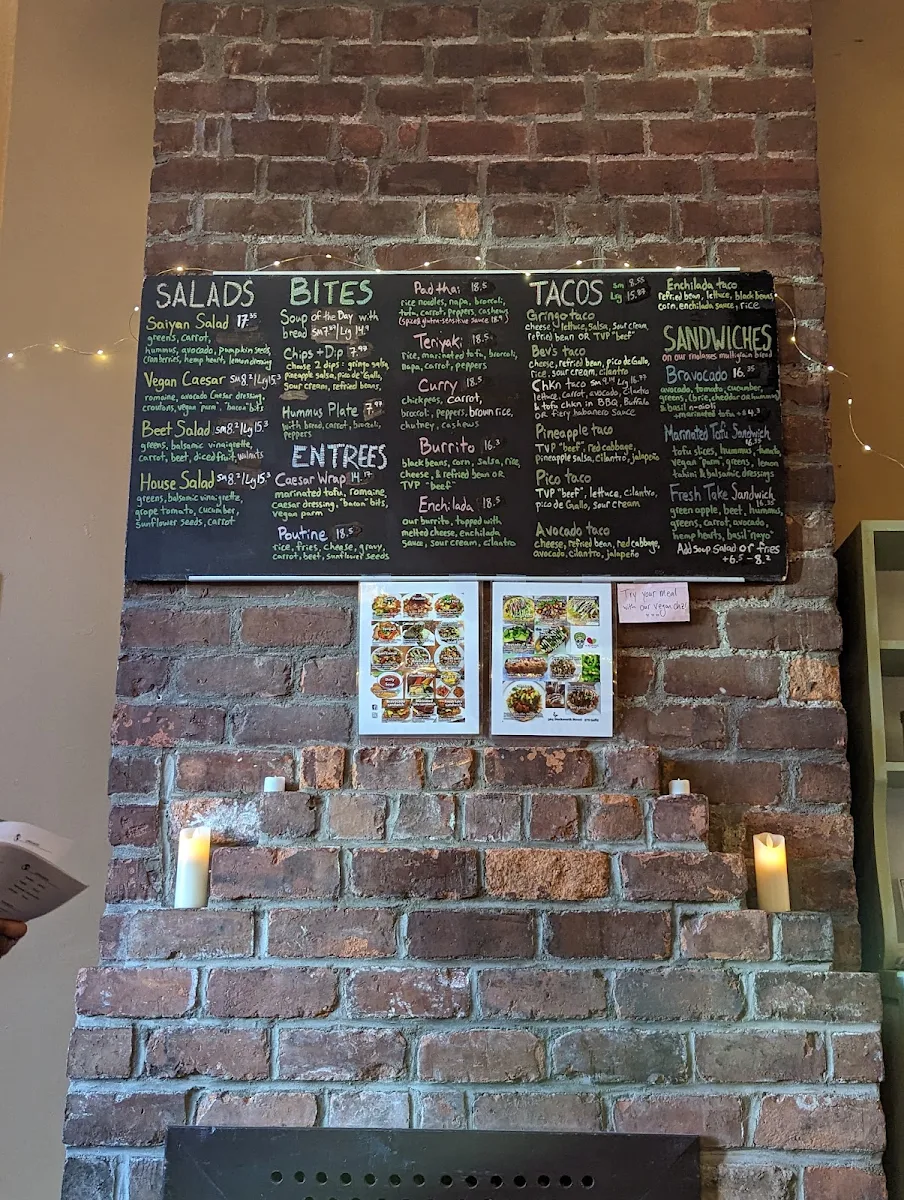 SALADS
Saiyan Salad 17.35
greens, carrot,
hummus, avocado, pumpkin seeds,
cranberries, hemp heart, lemon dressing
Vegan Caesar sm 8.2 / Lrg 15.3
romaine, avocado Caesar dressing,
croutons, vegan parm, bacon bits
Beet Salad sm 8.2 / Lrg 15.3
greens, balsamic vinaigrette,
carrot, beet, diced fruit, walnuts
House Salad sm 8.2 / Lrg 15.3
greens, balsamic vinaigrette,
grape tomato, cucumber,
sunflower seeds, carrot
BITES
Soup of the Day with
bread sm 7.99 / Lrg 14.9
Chips + Dip 7.99
choose 2 dips: gringo salsa,
pineapple salsa, pico de Gallo,
sour cream, refried beans,
Hummus Plate 7.99
with bread, carrot, broccoli,
peppers
ENTREES
Caesar Wrap 14.17
marinated tofu, romaine,
caesar dressing, "bacon" bits,
vegan parm
Poutine 18.5
rice, fries, cheese, gravy,
carrot, beet, sunflower seeds
Pad thai 18.5
rice noodles, napa, broccoli,
tofu, carrot, peppers, cashews
Teriyaki 18.5
rice, marinated tofu, broccoli,
napa, carrot, peppers
Curry 18.5
chickpeas, carrot,
broccoli, peppers, brown rice,
chutney, cashews
Burrito 16.3
black beans, corn, salsa, rice,
cheese, & refried bean OR
TVP "beef"
Enchilada 18.5
our burrito, topped with
melted cheese, enchilada
sauce, sour cream, cilantro
TACOS sm 8.55
Lrg 15.88
Gringo taco
cheese, lettuce, salsa, sour cream,
refried bean OR TVP "beef"
Bev's taco
cheese, refried bean, pico de Gallo,
rice, sour cream, cilantro
Chkn taco sm 9.14 Lrg 16.77
lettuce, carrot, avocado, cilantro
& tofu chkn in BBQ, Buffalo
or fiery habanero sauce
Pineapple taco
TVP "beef", red cabbage,
pineapple salsa, cilantro, jalapeño
Pico taco
TVP "beef", lettuce, cilantro,
pico de Gallo, sour cream
Avocado taco
cheese, refried bean, red cabbage,
avocado, cilantro, jalapeño
Enchilada taco
refried bean, lettuce, black beans,
corn, enchilada sauce, rice
SANDWICHES
on our molasses multigrain bread
Bravocado 16.35
avocado, tomato, cucumber,
greens, (brie, cheddar or hummus)
& basil n-aioli
+marinated tofu +4.3
Marinated Tofu Sandwich
tofu slices, hummus, tomato,
vegan parm, greens, lemon
tahini & balsamic dressings
Fresh Take Sandwich
green apple, beet, hummus,
greens, carrot, avocado,
hemp hearts, basil "nayo"
Add soup salad or fries
+6.5 - 8.2
Try your meal
with our vegan che